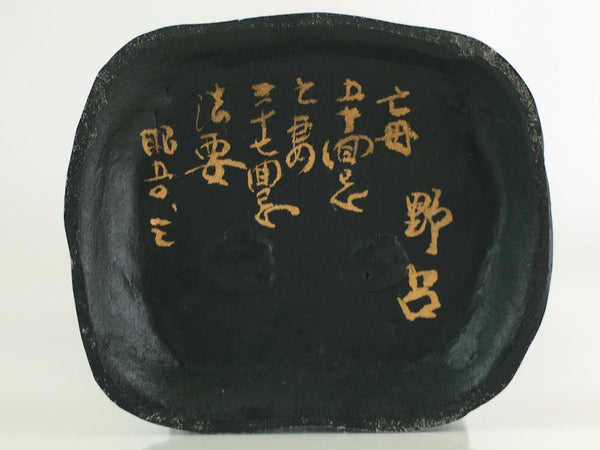 野呂
亡母
五十回忌
亡妻
三十七回忌
法要
昭五〇、三